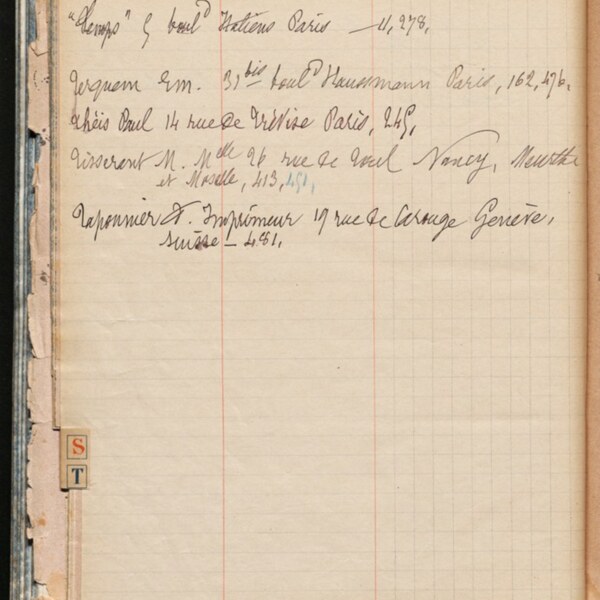 "Temps" 5 boulᵈ Italiens Paris — 11, 278.
Terquem Em. 31bis boulᵈ Haussmann Paris, 162, 476.
Théis Paul 14 rue de Trévise Paris, 245,
Tisserent M. Melle 26 rue de Toul Nancy, Meurthe
et Moselle, 413, 451,
Taponnier A. Imprimeur 19 rue de Carouge Genève,
Suisse — 481.
S
T